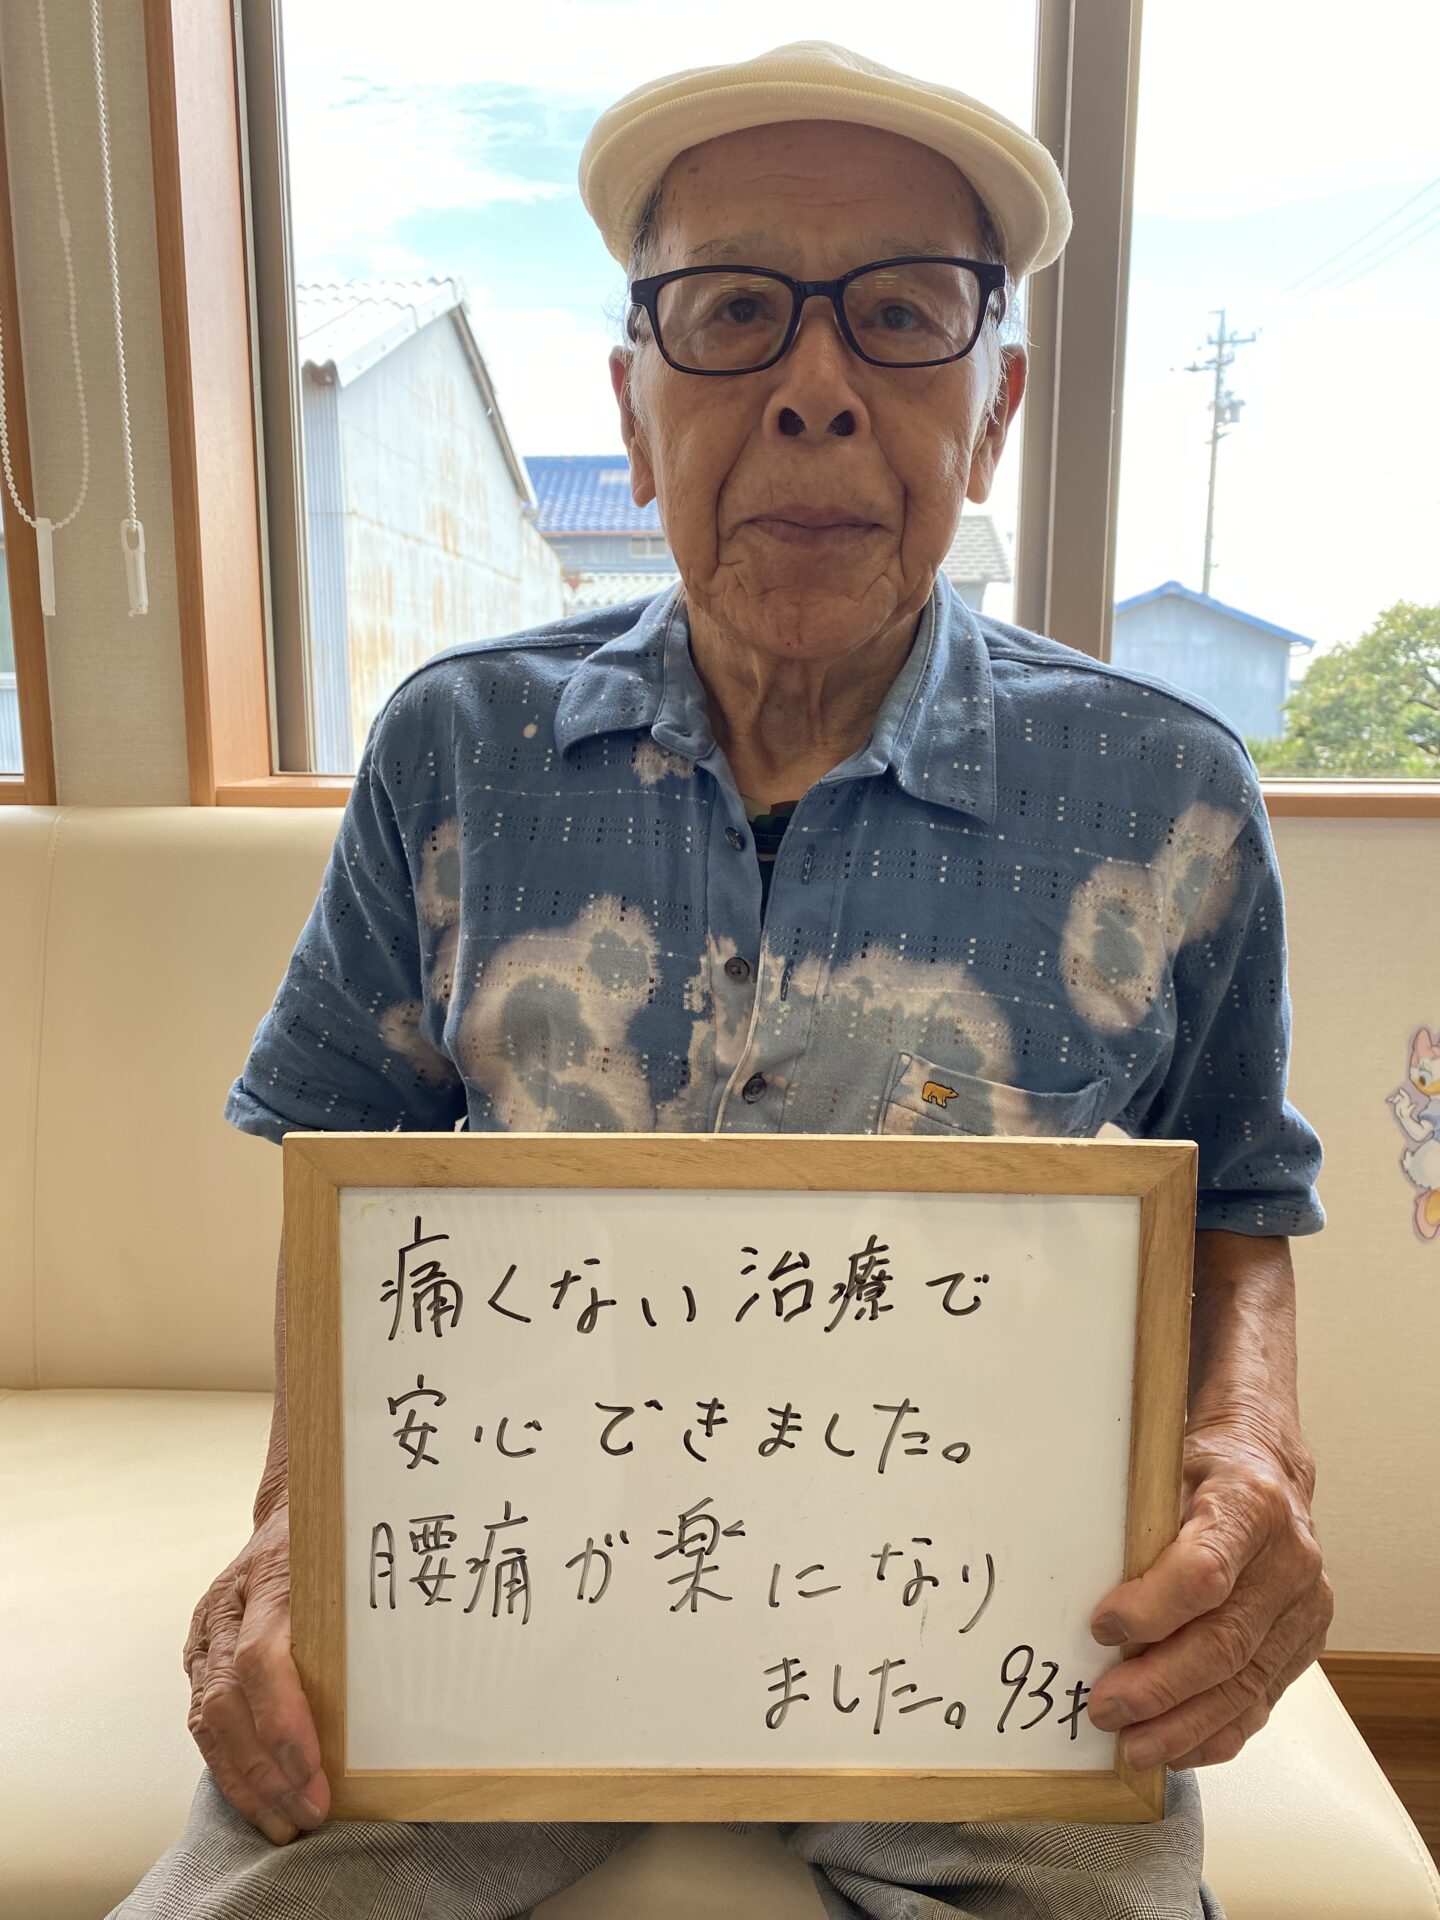 痛くない治療で
安心できました。
腰痛が楽になり
ました。93才